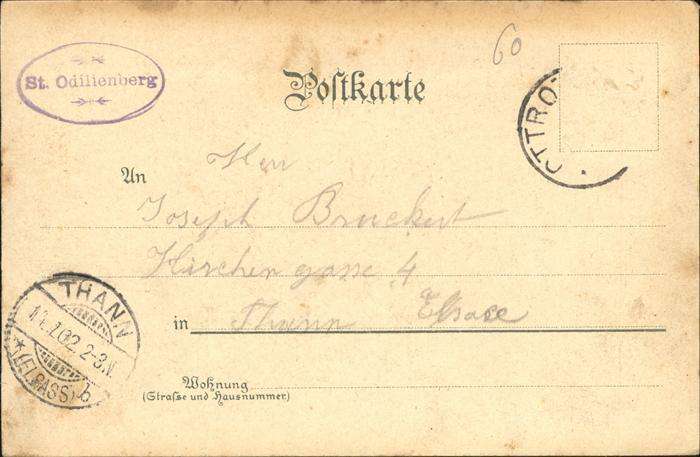 60
St. Odilienberg
Postkarte
OTTRO
An Herr
Joseph Bruckert
Kirchengasse 4
in Thann Elsace
THANN
2-3.N.
*(ELSASS) b
Wohnung
(Straße und Hausnummer)